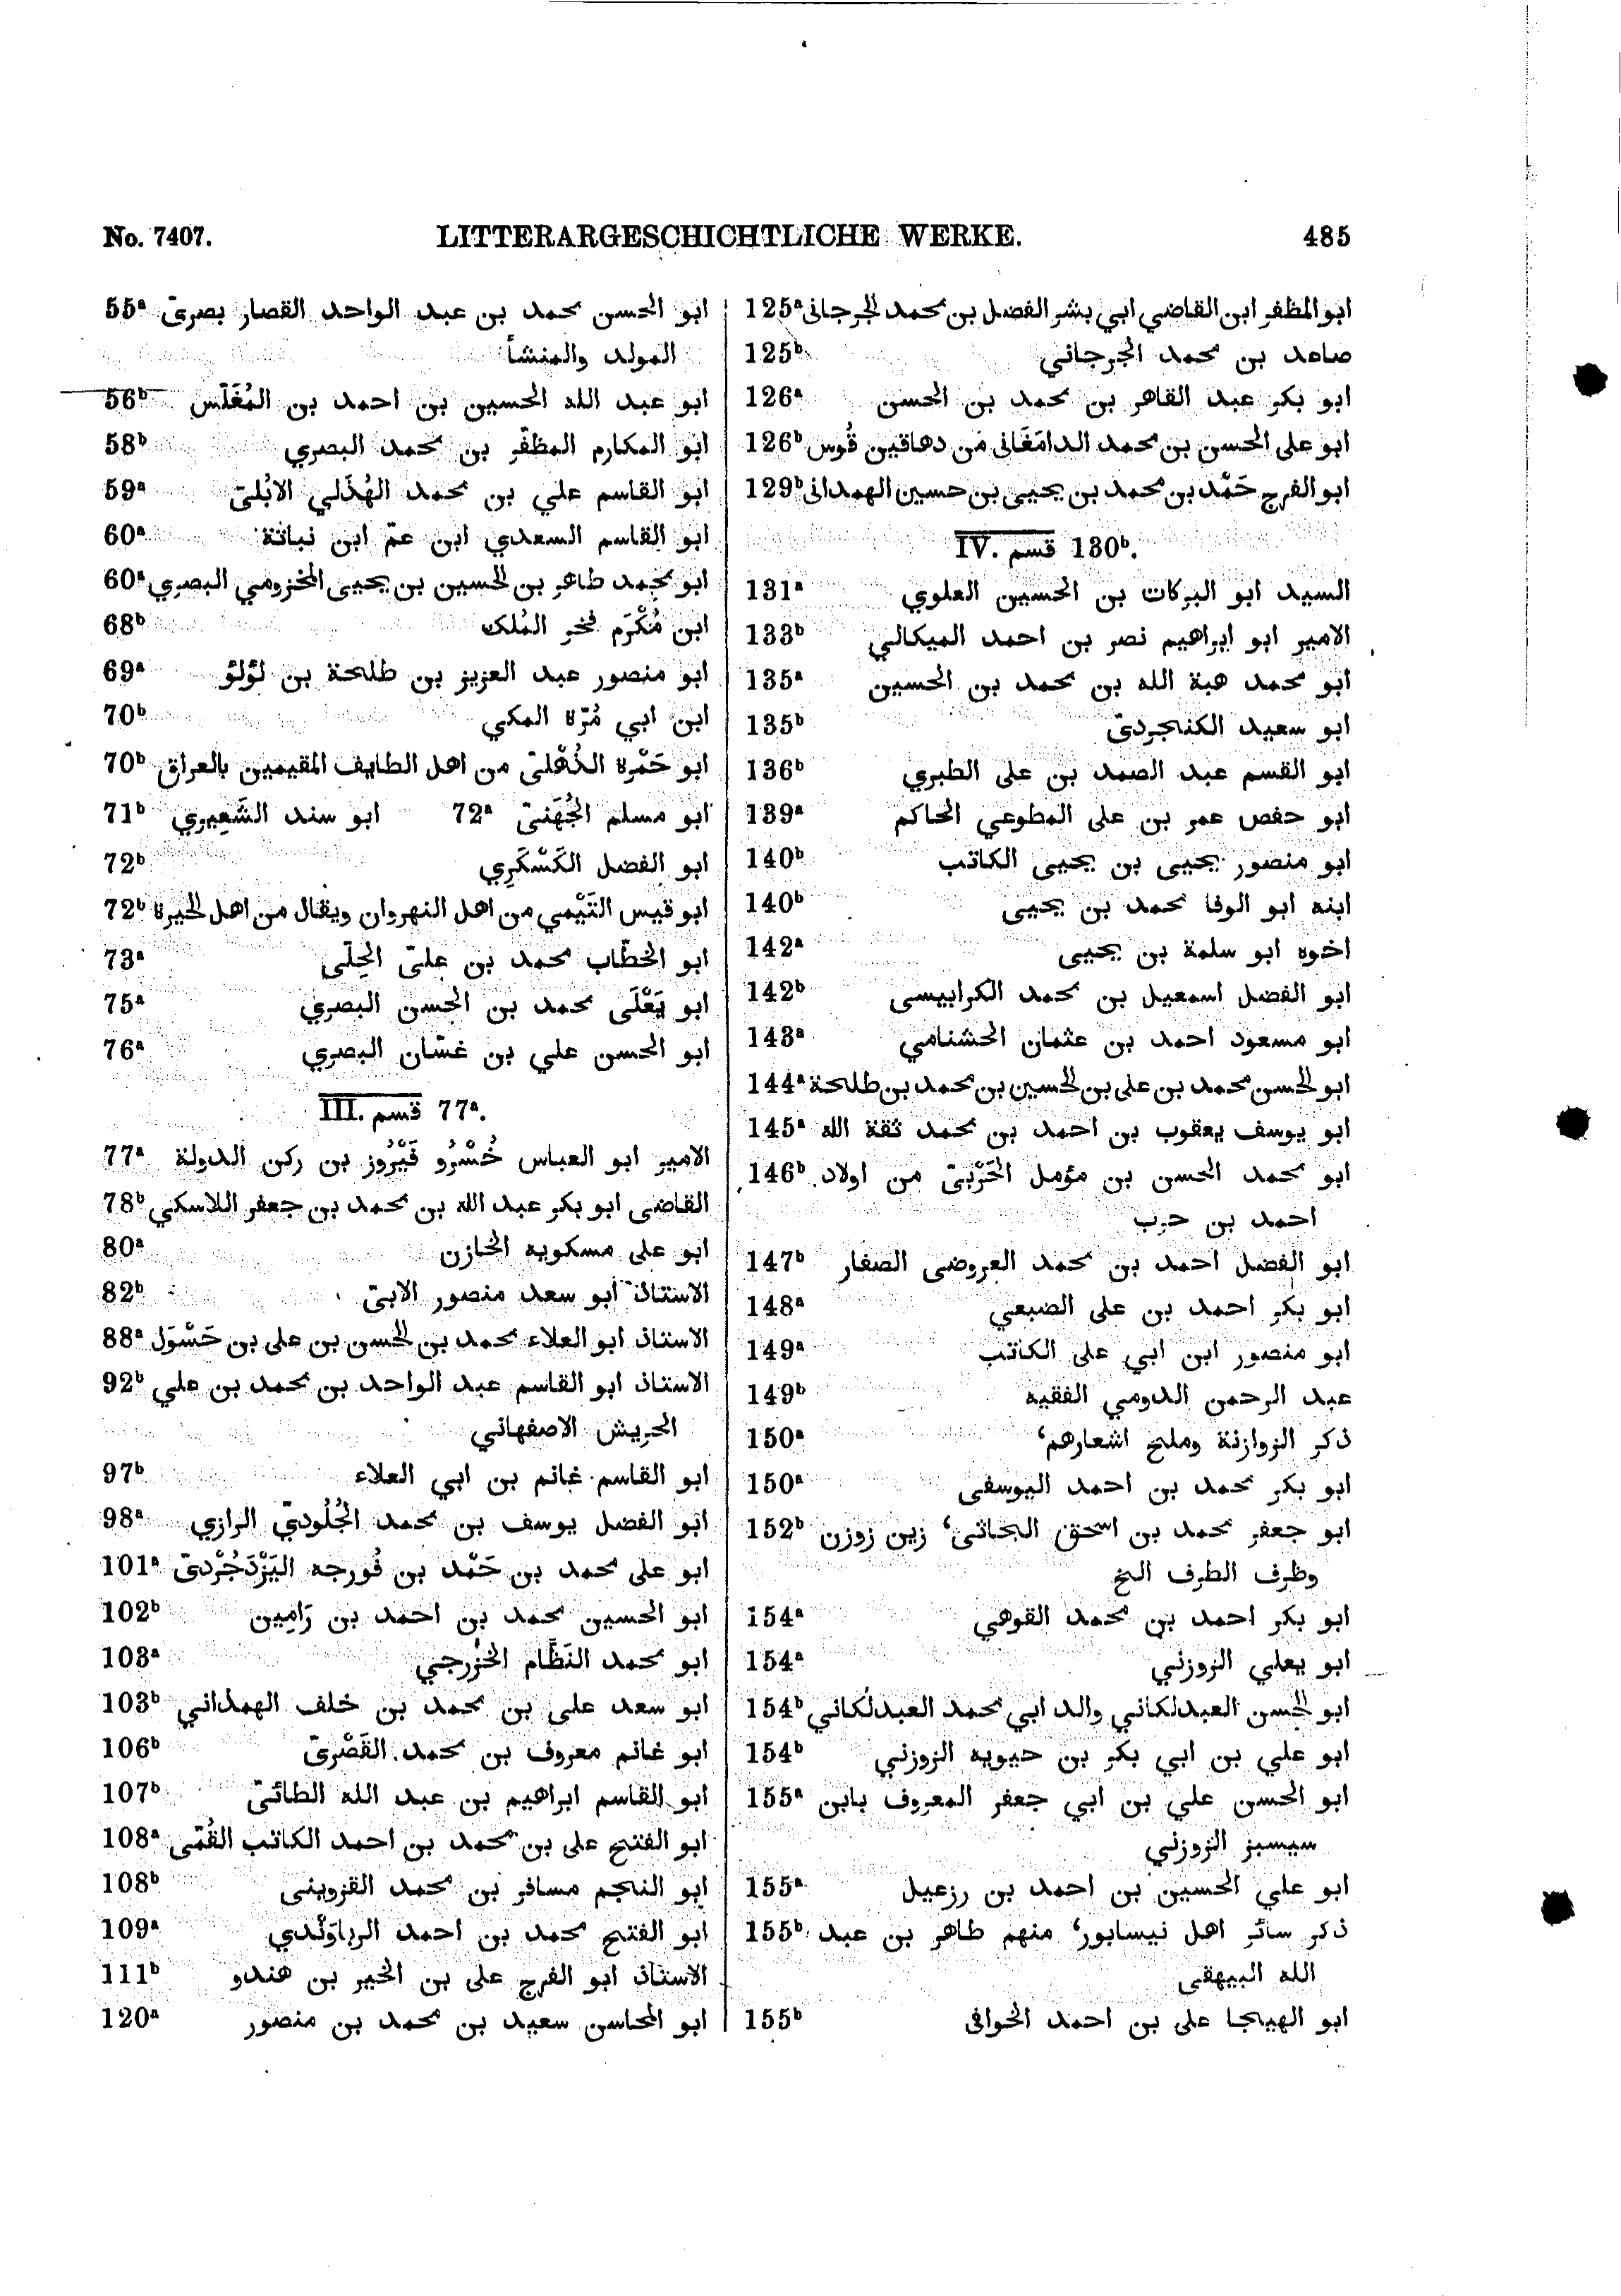 No. 7407. LITTERARGESCHICHTLICHE WERKE. 485
55ᵃ ابو الحسن محمد بن عبد الواحد القصار بصرىّ
المولد والمنشأ
56ᵇ ابو عبد الله الحسين بن احمد بن المُغَلّس
58ᵇ ابو المكارم المظفّر بن محمد البصري
59ᵃ ابو القاسم علي بن محمد الهُذَلي الابُلىّ
60ᵃ ابو القاسم السعدي ابن عمّ ابن نباتة
60ᵃ ابو محمد طاهر بن الحسين بن يحيى المخزومي البصري
68ᵇ ابن مُكْرَم فخر المُلك
69ᵃ ابو منصور عبد العزيز بن طلحة بن لؤلؤ
70ᵇ ابن ابي مُرّة المكي
70ᵇ ابو حَمْرة الذُهْلىّ من اهل الطايف المقيمين بالعراق
71ᵇ ابو مسلم الجُهَنىّ 72ᵃ ابو سند الشَعِيري
72ᵇ ابو الفضل الكَسْكَرِي
72ᵇ ابو قيس التَيْمي من اهل النهروان ويقال من اهل الحيرة
73ᵃ ابو الخطّاب محمد بن علىّ الحِلّى
75ᵃ ابو يَعْلَى محمد بن الحسن البصري
76ᵃ ابو الحسن علي بن غسّان البصري
III. قسم 77ᵃ.
77ᵃ الامير ابو العباس خُسْرُو فَيْرُوز بن ركن الدولة
78ᵇ القاضى ابو بكر عبد الله بن محمد بن جعفر اللاسكي
80ᵃ ابو على مسكويه الخازن
82ᵇ الاستاذ ابو سعد منصور الابىّ
88ᵃ الاستاذ ابو العلاء محمد بن الحسن بن على بن حَسْوَل
92ᵇ الاستاذ ابو القاسم عبد الواحد بن محمد بن علي
الحريش الاصفهاني
97ᵇ ابو القاسم غانم بن ابي العلاء
98ᵃ ابو الفضل يوسف بن محمد الجُلُودىّ الرازي
101ᵃ ابو على محمد بن حَمْد بن فُورجه اليَزْدَجُرْدىّ
102ᵇ ابو الحسين محمد بن احمد بن رَامِين
103ᵃ ابو محمد النَظَّام الخزْرجي
103ᵇ ابو سعد على بن محمد بن خلف الهمداني
106ᵇ ابو غانم معروف بن محمد القَصْرىّ
107ᵇ ابو القاسم ابراهيم بن عبد الله الطائىّ
108ᵃ ابو الفتح على بن محمد بن احمد الكاتب القُمّى
108ᵇ ابو النجم مسافر بن محمد القزوينى
109ᵃ ابو الفتح محمد بن احمد الرباوَنْدي
111ᵇ الاستاذ ابو الفرج على بن الخير بن هندو
120ᵃ ابو المحاسن سعيد بن محمد بن منصور
125ᵃ ابو المظفر ابن القاضي ابي بشر الفضل بن محمد الجرجانى
125ᵇ صاعد بن محمد الجرجاني
126ᵃ ابو بكر عبد القاهر بن محمد بن الحسن
126ᵇ ابو على الحسن بن محمد الدامَغَانى مَن دهاقين قُوس
129ᵇ ابو الفرج حَمْد بن محمد بن يحيى بن حسين الهمدانى
IV. قسم 130ᵇ.
131ᵃ السيد ابو البركات بن الحسين العلوي
133ᵇ الامير ابو ابراهيم نصر بن احمد الميكالي
135ᵃ ابو محمد هبة الله بن محمد بن الحسين
135ᵇ ابو سعيد الكنجردىّ
136ᵇ ابو القسم عبد الصمد بن على الطبري
139ᵃ ابو حفص عمر بن على المطوعي الحاكم
140ᵇ ابو منصور يحيى بن يحيى الكاتب
140ᵇ ابنه ابو الوفا محمد بن يحيى
142ᵃ اخوه ابو سلمة بن يحيى
142ᵇ ابو الفضل اسمعيل بن محمد الكرابيسى
143ᵃ ابو مسعود احمد بن عثمان الخشنامي
144ᵃ ابو الحسن محمد بن على بن الحسين بن محمد بن طلحة
145ᵃ ابو يوسف يعقوب بن احمد بن محمد ثقة الله
146ᵇ ابو محمد الحسن بن مؤمل الحَرْبىّ من اولاد
احمد بن حرب
147ᵇ ابو الفضل احمد بن محمد العروضى الصفار
148ᵃ ابو بكر احمد بن على الضبعي
149ᵃ ابو منصور ابن ابي على الكاتب
149ᵇ عبد الرحمن الدومي الفقيه
150ᵃ ذكر الزوازنة وملح اشعارهم،
150ᵃ ابو بكر محمد بن احمد اليوسفى
152ᵇ ابو جعفر محمد بن اسحق البحاثى، زين زوزن
وظرف الطرف الخ
154ᵃ ابو بكر احمد بن محمد القوهي
154ᵃ ابو يعلي الزوزني
154ᵇ ابو الحسن العبدلكاني والد ابي محمد العبدلكاني
154ᵇ ابو علي بن ابي بكر بن حيويه الزوزني
155ᵃ ابو الحسن علي بن ابي جعفر المعروف بابن
سيسبز الزوزني
155ᵃ ابو علي الحسين بن احمد بن رزعيل
155ᵇ ذكر سائر اهل نيسابور، منهم طاهر بن عبد
الله البيهقى
155ᵇ ابو الهيجا على بن احمد الخوافى